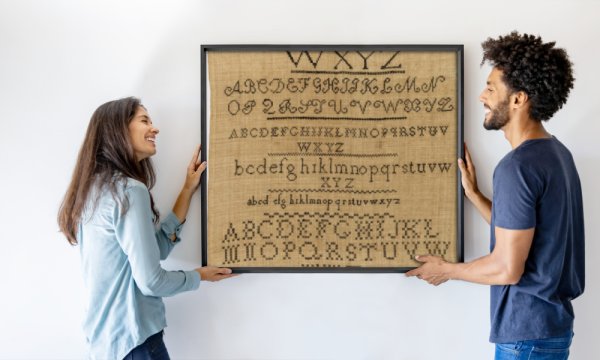 WXYZ
ABCDEFGHIJKLMN
OPQRSTUVWXYZ
ABCDEFGHIJKLMNOPQRSTUV
WXYZ
bcdefghiklmnopqrstuvw
XYZ
abcdefghiklmnopqrstuvwxyz
ABCDEFGHIJKL
MNOPQRSTUVW